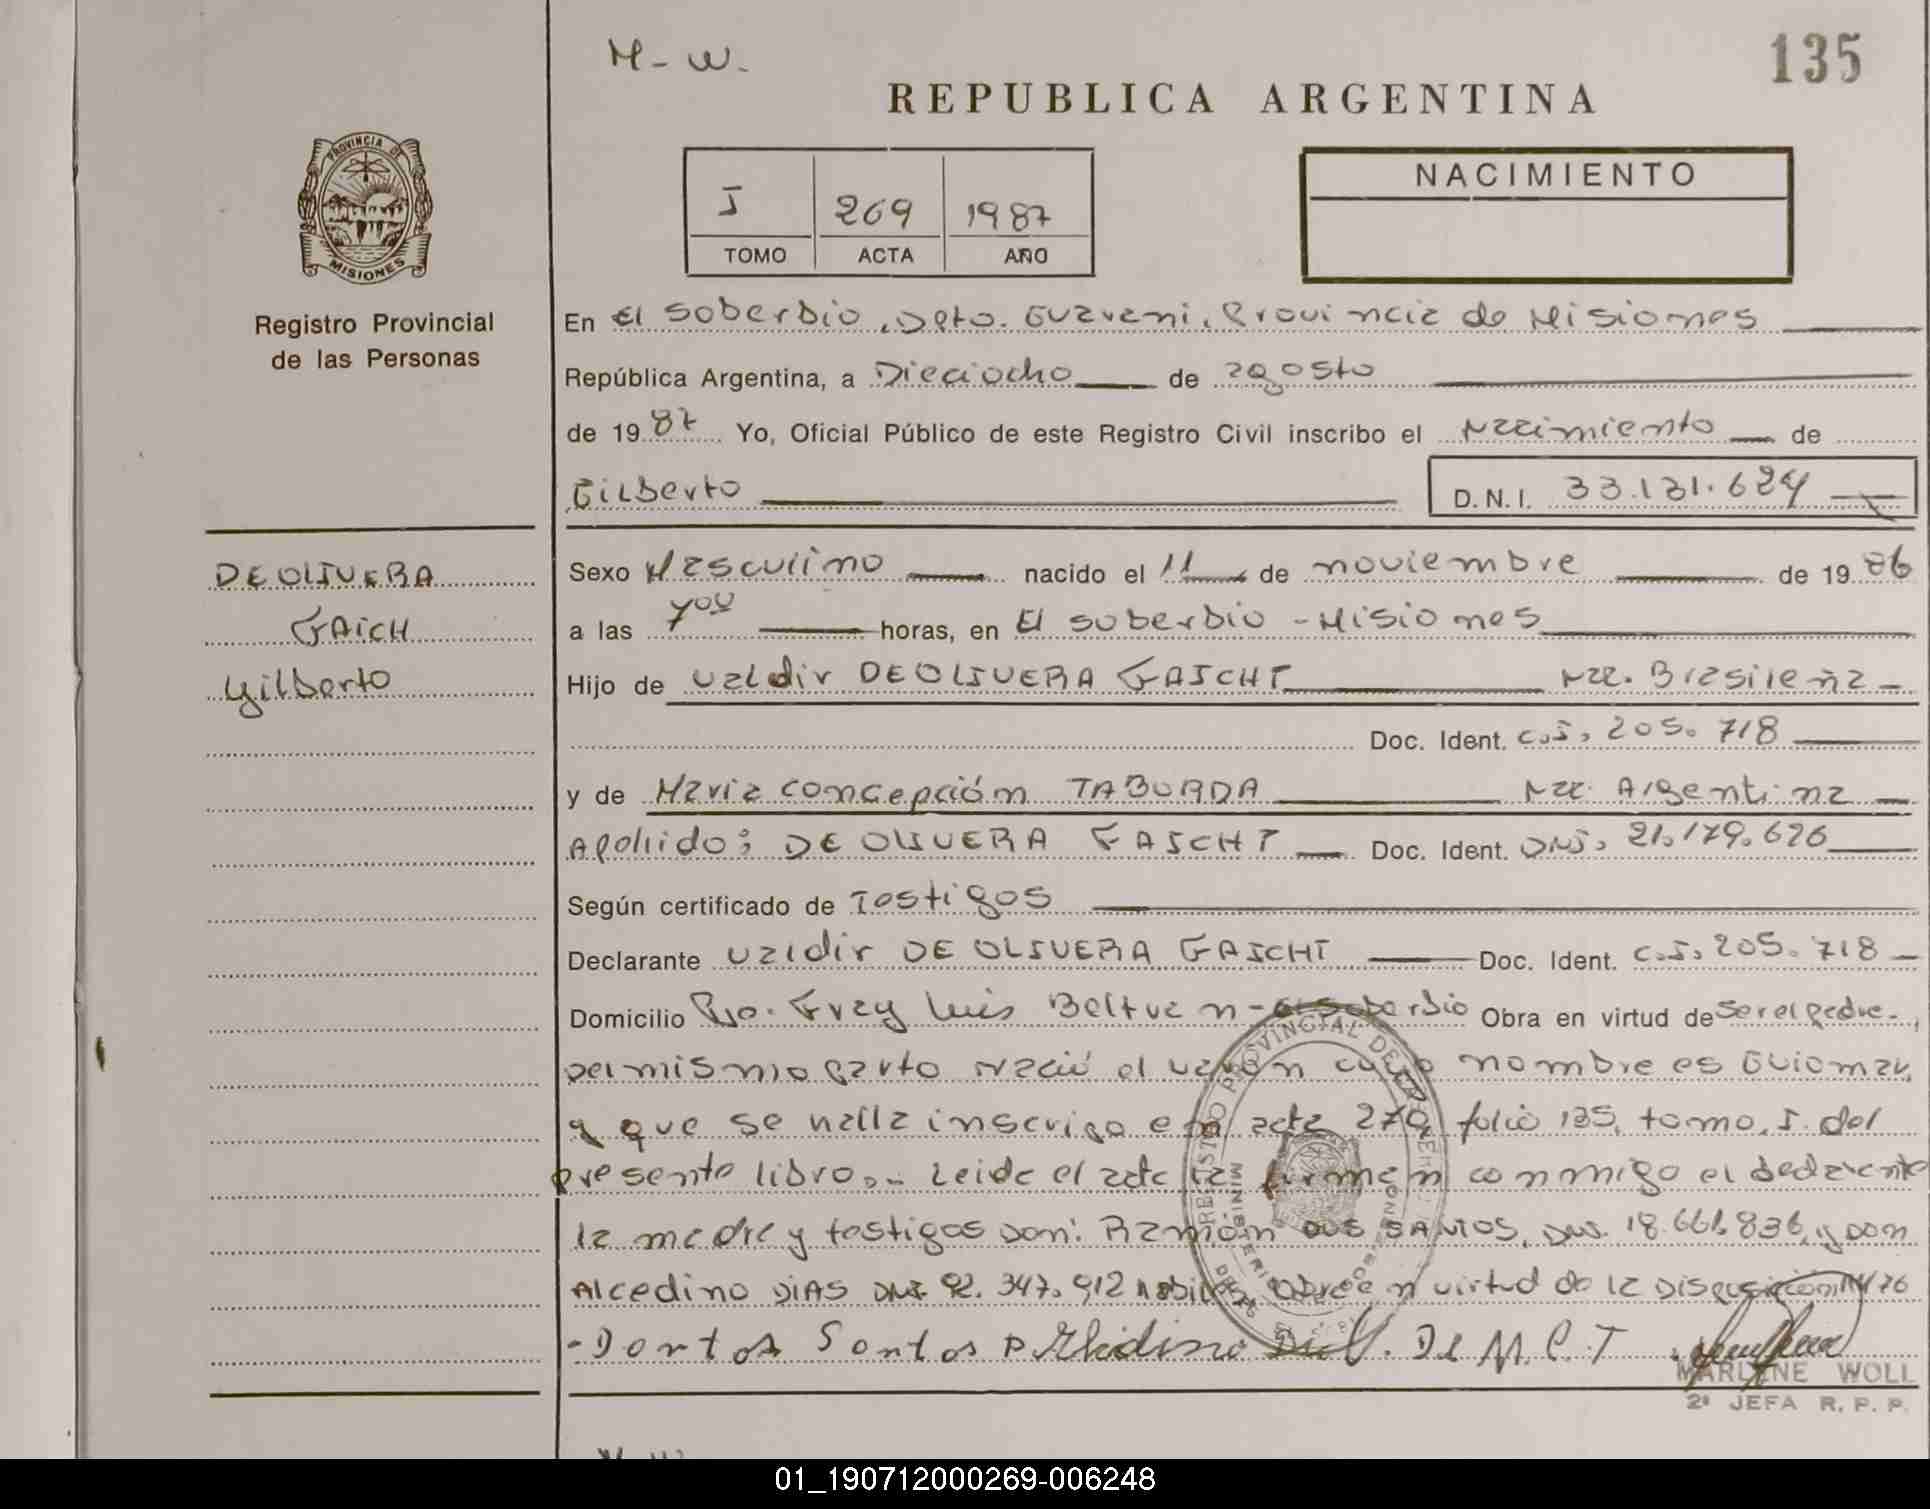 M - W.
135
REPUBLICA ARGENTINA
PROVINCIA DE MISIONES
Registro Provincial
de las Personas
I 269 1987
TOMO ACTA AÑO
NACIMIENTO
En El Soberbio, Dpto. Guarani, Provincia de Misiones
República Argentina, a Dieciocho de agosto
de 19 87 Yo, Oficial Público de este Registro Civil inscribo el Nacimiento de
Gilberto D.N.I. 33.131.624
DEOLIVERA
GAICH
Gilberto
Sexo Masculino nacido el 11 de noviembre de 19 86
a las 7 00 horas, en El Soberbio - Misiones
Hijo de Valdir DEOLIVERA GAICHT Nac. Brasileña
Doc. Ident. C.I. 205.718
y de Maria Concepción TABORDA Nac. Argentina
Apellido: DE OLIVERA GAICHT Doc. Ident. DNI. 21.179.626
Según certificado de Testigos
Declarante Valdir DE OLIVERA GAICHT Doc. Ident. C.I. 205.718
Domicilio Bo. Fray Luis Beltran - El Soberbio Obra en virtud de ser el padre.
Del mismo parto Nació el varon cuyo nombre es Guiomar,
y que se halla inscripto en acta 270, folio 135, tomo, I. del
presente libro.- Leida el acta la firman conmigo el declarante
la madre y testigos Don: Ramón DOS SANTOS, DNI. 18.661.836, y Don
Alcedino DIAS DNI. 92.347.912 Obra en virtud de la Disposición
Santos De M.C.T
MARLENE WOLL
2ª JEFA R.P.P.
REGISTRO PROVINCIAL DE
01_190712000269-006248